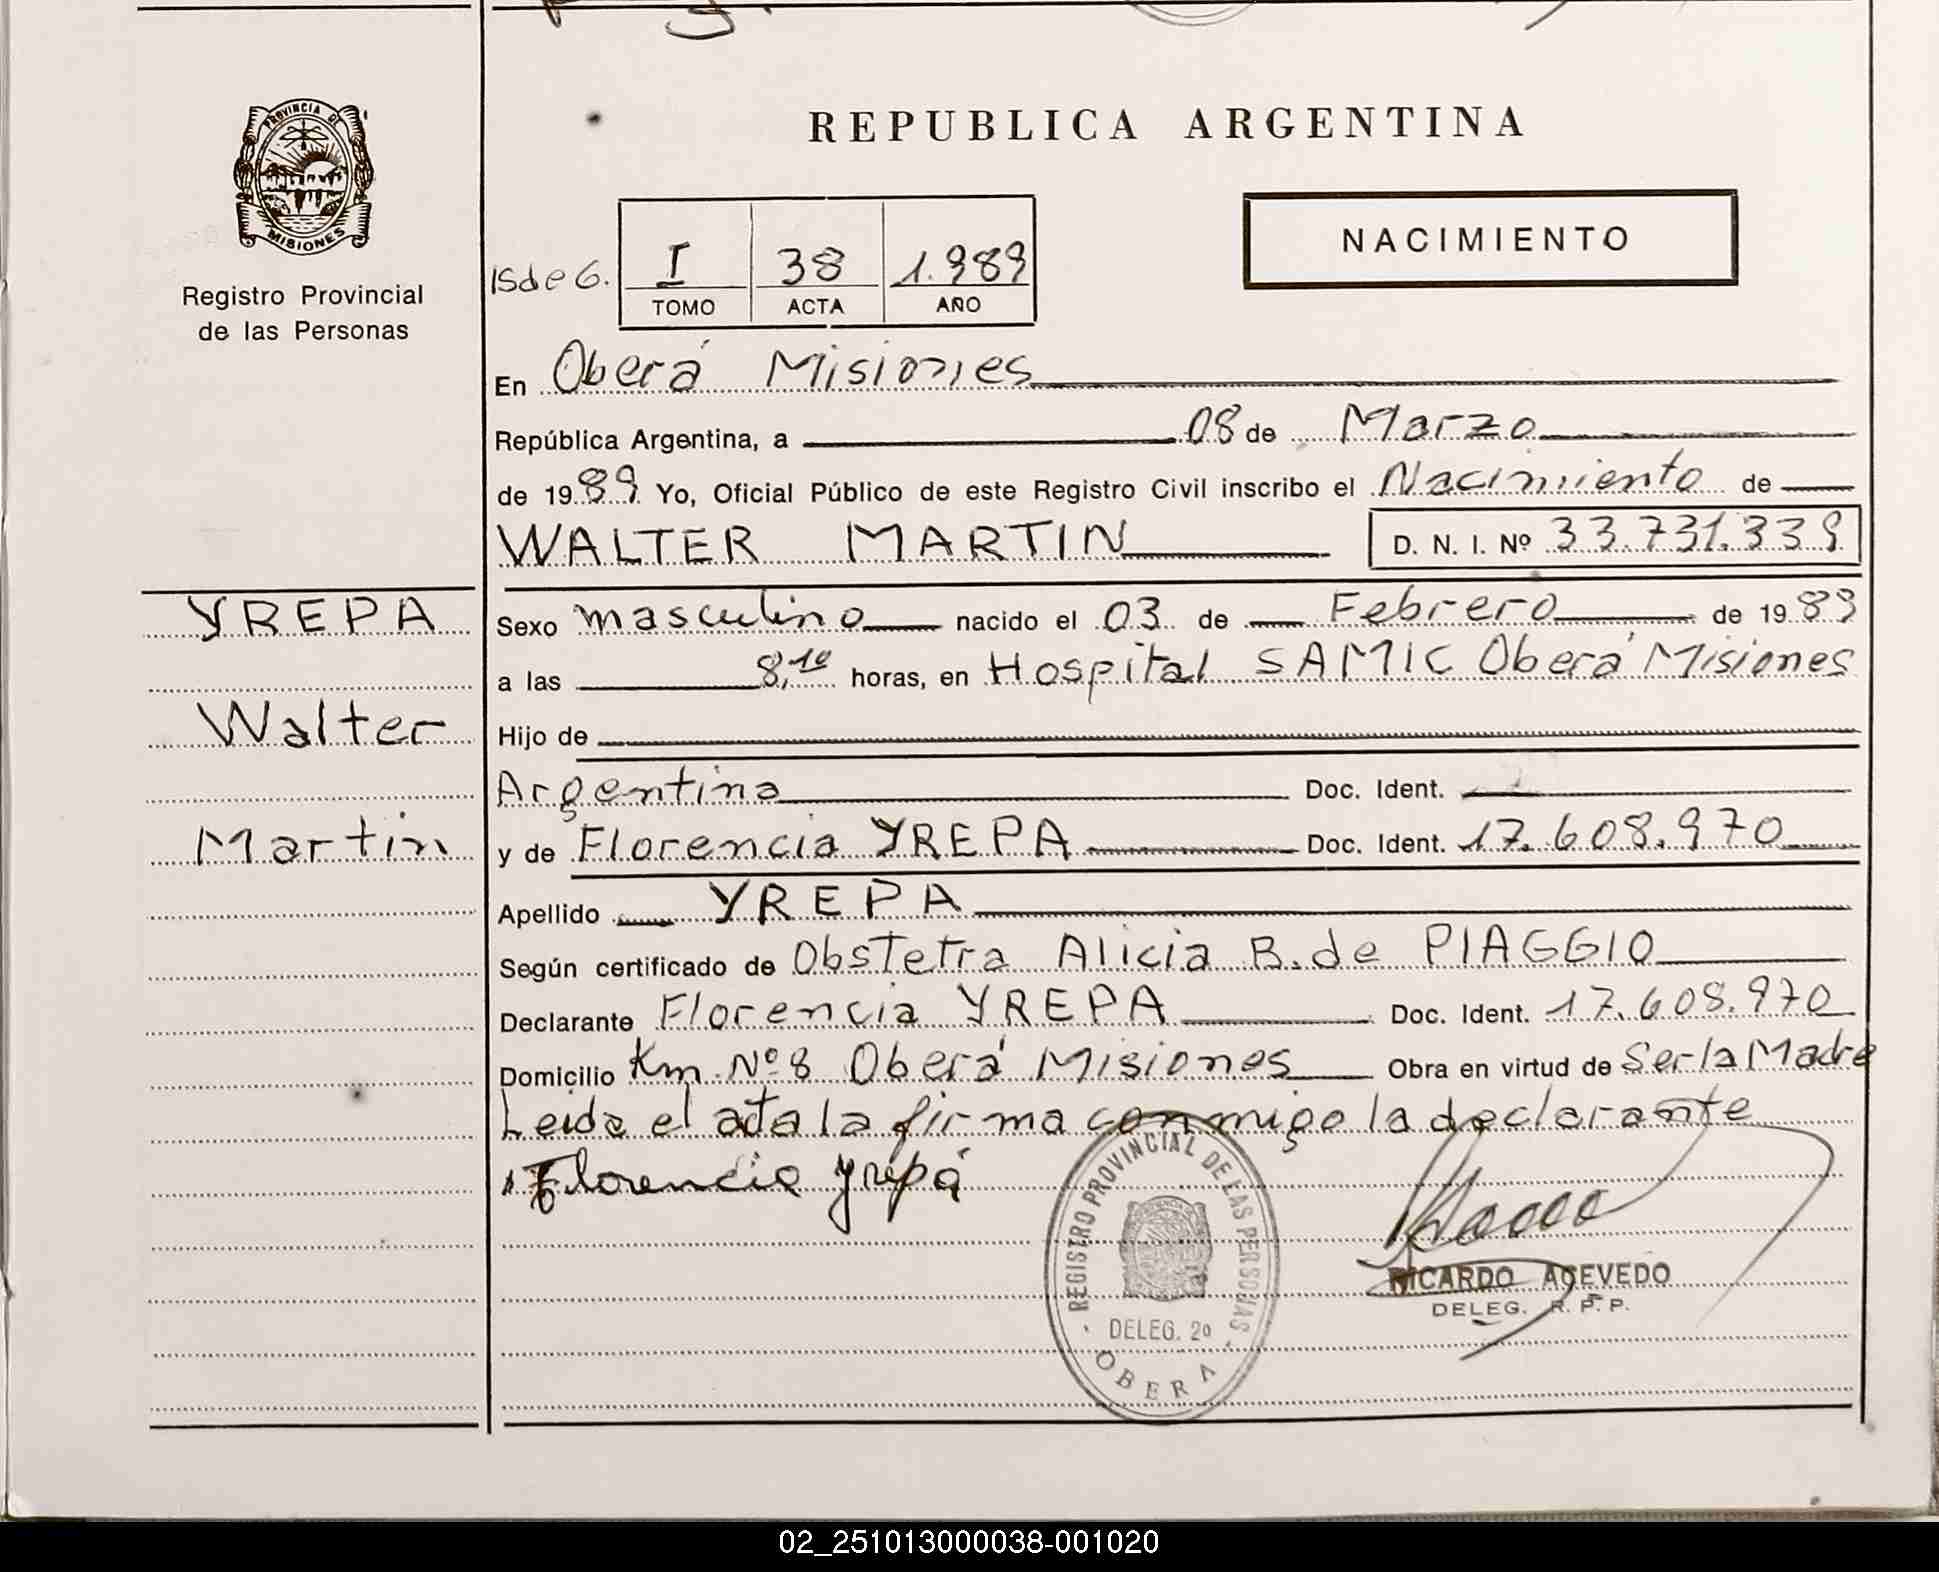 PROVINCIA DE
MISIONES
Registro Provincial
de las Personas
REPUBLICA ARGENTINA
NACIMIENTO
I 38 1.989
TOMO ACTA AÑO
En Oberá Misiones
República Argentina, a 08 de Marzo
de 1989 Yo, Oficial Público de este Registro Civil inscribo el Nacimiento de
WALTER MARTIN D. N. I. Nº 33.731.339
YREPA
Walter
Martin
Sexo masculino nacido el 03 de Febrero de 1989
a las 8,10 horas, en Hospital SAMIC Oberá Misiones
Hijo de
Argentina Doc. Ident.
y de Florencia YREPA Doc. Ident. 17.608.970
Apellido YREPA
Según certificado de Obstetra Alicia B. de PIAGGIO
Declarante Florencia YREPA Doc. Ident. 17.608.970
Domicilio Km Nº 8 Oberá Misiones Obra en virtud de Ser la Madre
Leida el acta la firma conmigo la declarante
Florencia Yrepá
REGISTRO PROVINCIAL DE LAS PERSONAS
DELEG. 2º
OBERA
RICARDO ACEVEDO
DELEG. R. P. P.
02_251013000038-001020